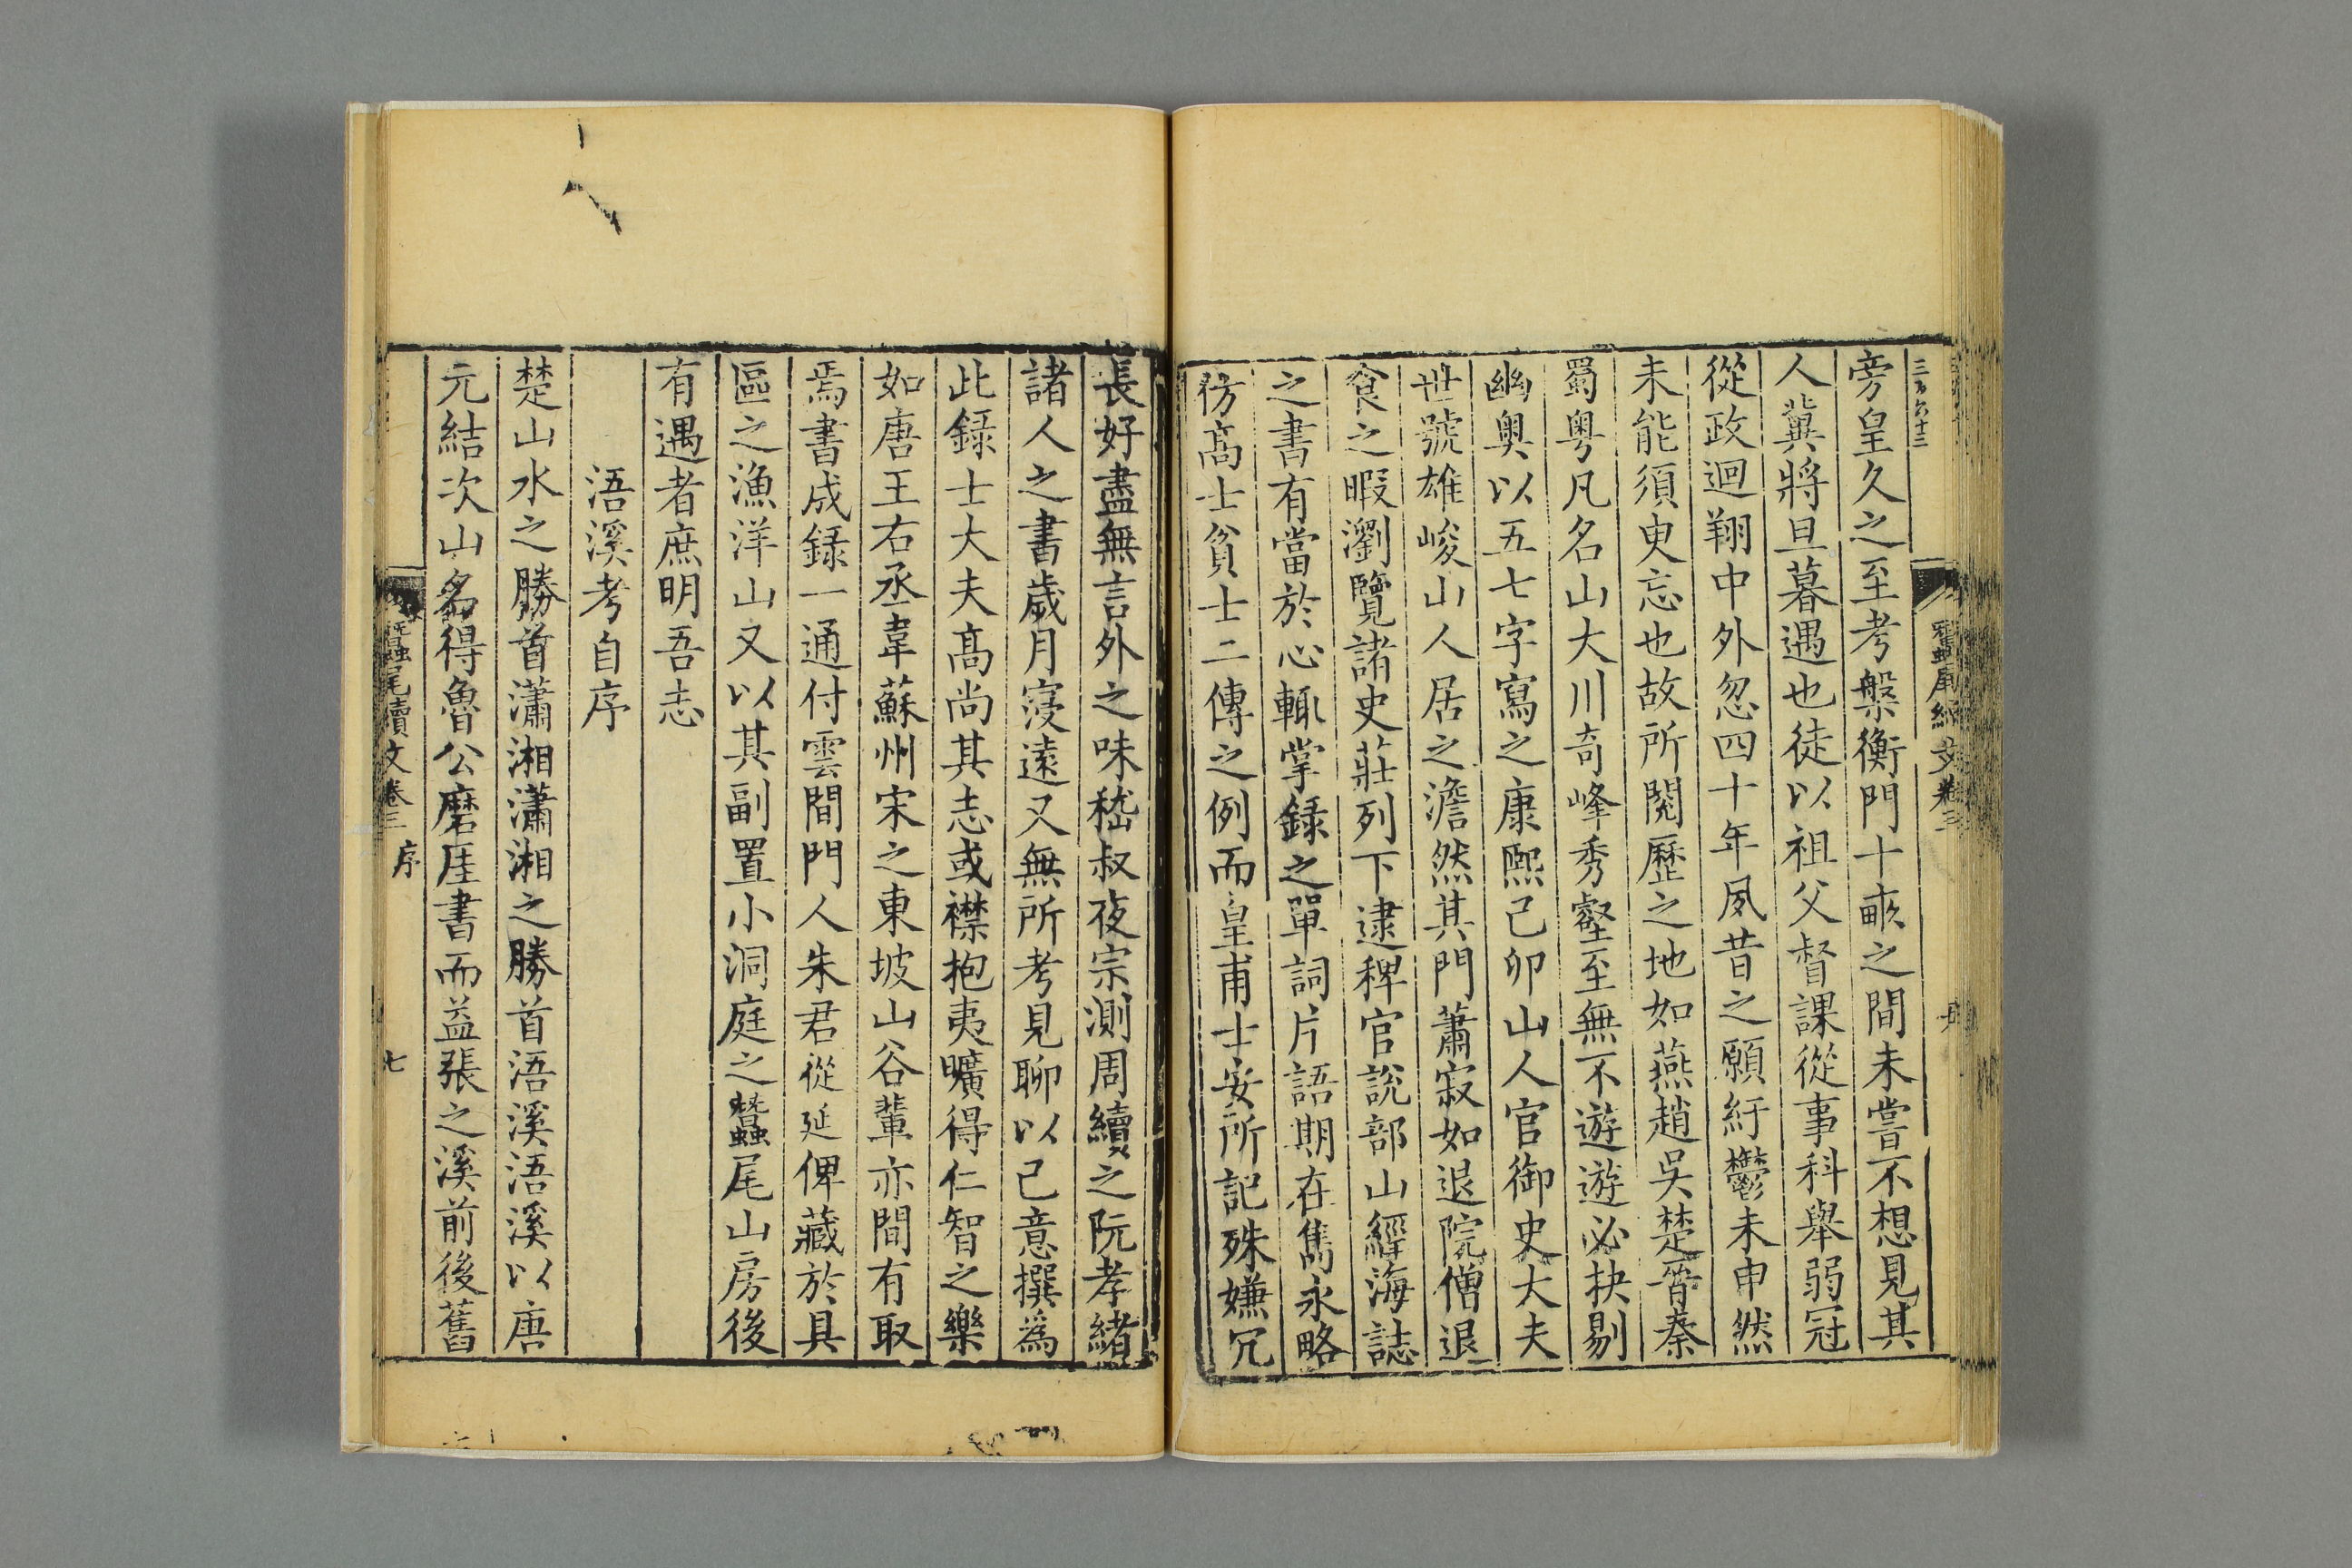 旁皇久之至考槃衡門十畝之間未嘗不想見其
人冀將旦暮遇也徒以祖父督課從事科舉弱冠
從政迴翔中外忽四十年夙昔之願紆鬱未申然
未能須臾忘也故所閱歷之地如燕趙吳楚晉秦
蜀粵凡名山大川奇峰秀壑至無不遊遊必抉剔
幽奧以五七字寫之康熙己卯山人官御史大夫
世號雄峻山人居之澹然其門蕭寂如退院僧退
食之暇瀏覽諸史莊列下逮稗官說部山經海誌
之書有當於心輒掌録之單詞片語期在雋永略
仿髙士貧士二傳之例而皇甫士安所記殊嫌冗
長好盡無言外之味嵇叔夜宗測周續之阮孝緒
諸人之書歲月寖遠又無所考見聊以己意撰爲
此録士大夫髙尚其志或襟抱夷曠得仁智之樂
如唐王右丞韋蘇州宋之東坡山谷輩亦間有取
焉書成録一通付雲間門人朱君從延俾藏於具
區之漁洋山又以其副置小洞庭之蠶尾山房後
有遇者庶明吾志
浯溪考自序
楚山水之勝首瀟湘瀟湘之勝首浯溪浯溪以唐
元結次山名得魯公磨厓書而益張之溪前後舊
蠶尾續文卷三 序
七